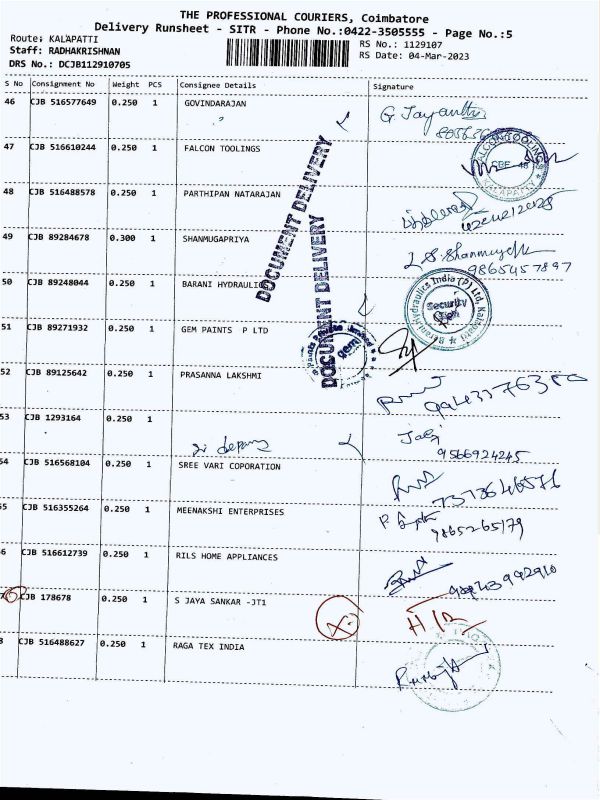 THE PROFESSIONAL COURIERS, Coimbatore
Delivery Runsheet - SITR - Phone No.:0422-3505555 - Page No.:5
Route: KALAPATTI
RS No.: 1129107
Staff: RADHAKRISHNAN
RS Date: 04-Mar-2023
DRS No.: DCJB112910705
S No Consignment No Weight PCS Consignee Details Signature
46 CJB 516577649 0.250 1 GOVINDARAJAN G Jayanthi
47 CJB 516610244 0.250 1 FALCON TOOLINGS
FALCON TOOLINGS
KALAPATTY
48 CJB 516488578 0.250 1 PARTHIPAN NATARAJAN
49 CJB 89284678 0.300 1 SHANMUGAPRIYA
9865457897
DOCUMENT DELIVERY
DOCUMENT DELIVERY
50 CJB 89248044 0.250 1 BARANI HYDRAULIC
Barani Hydraulics India (P) Ltd, Kalapatti
Security
51 CJB 89271932 0.250 1 GEM PAINTS P LTD
gem
52 CJB 89125642 0.250 1 PRASANNA LAKSHMI
53 CJB 1293164 0.250 1
9566924245
54 CJB 516568104 0.250 1 SREE VARI COPORATION
7373646576
55 CJB 516355264 0.250 1 MEENAKSHI ENTERPRISES
9865265179
56 CJB 516612739 0.250 1 RILS HOME APPLIANCES
CJB 178678 0.250 1 S JAYA SANKAR -JT1
CJB 516488627 0.250 1 RAGA TEX INDIA